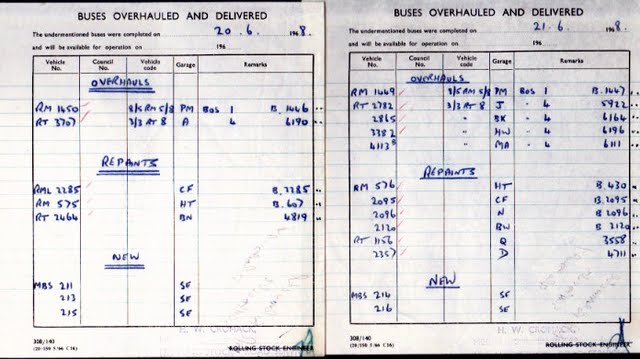 BUSES OVERHAULED AND DELIVERED
The undermentioned buses were completed on 20 . 6 . 1968.
and will be available for operation on 196
Vehicle No. Council No. Vehicle code Garage Remarks
OVERHAULS
RM 1450 8/5 RM 5/8 PM BOS 1 B.1446
RT 3707 3/3 RT 8 A 4 6190
REPAINTS
RML 2285 CF B.2285
RM 575 HT B.607
RT 2464 BN 4819
NEW
MBS 211 SF
213 SF
215 SF
308/140
H. W. CROMACK,
ROLLING STOCK ENGINEER
BUSES OVERHAULED AND DELIVERED
The undermentioned buses were completed on 21 . 6 . 1968.
and will be available for operation on 196
Vehicle No. Council No. Vehicle code Garage Remarks
OVERHAULS
RM 1449 8/5 RM 5/8 PM BOS 1 B.1447
RT 2782 3/3 RT 8 J " 4 5922
2865 " BK " 4 6164
3382 " HW " 4 6196
4113 " MA " 4 6111
REPAINTS
RM 576 HT B.430
2095 CF B.2095
2096 N B.2096
2120 BW B 2120
RT 1156 Q 3558
2357 D 4711
NEW
MBS 214 SF
216 SF
308/140
H. W. CROMACK,
ROLLING STOCK ENGINEER